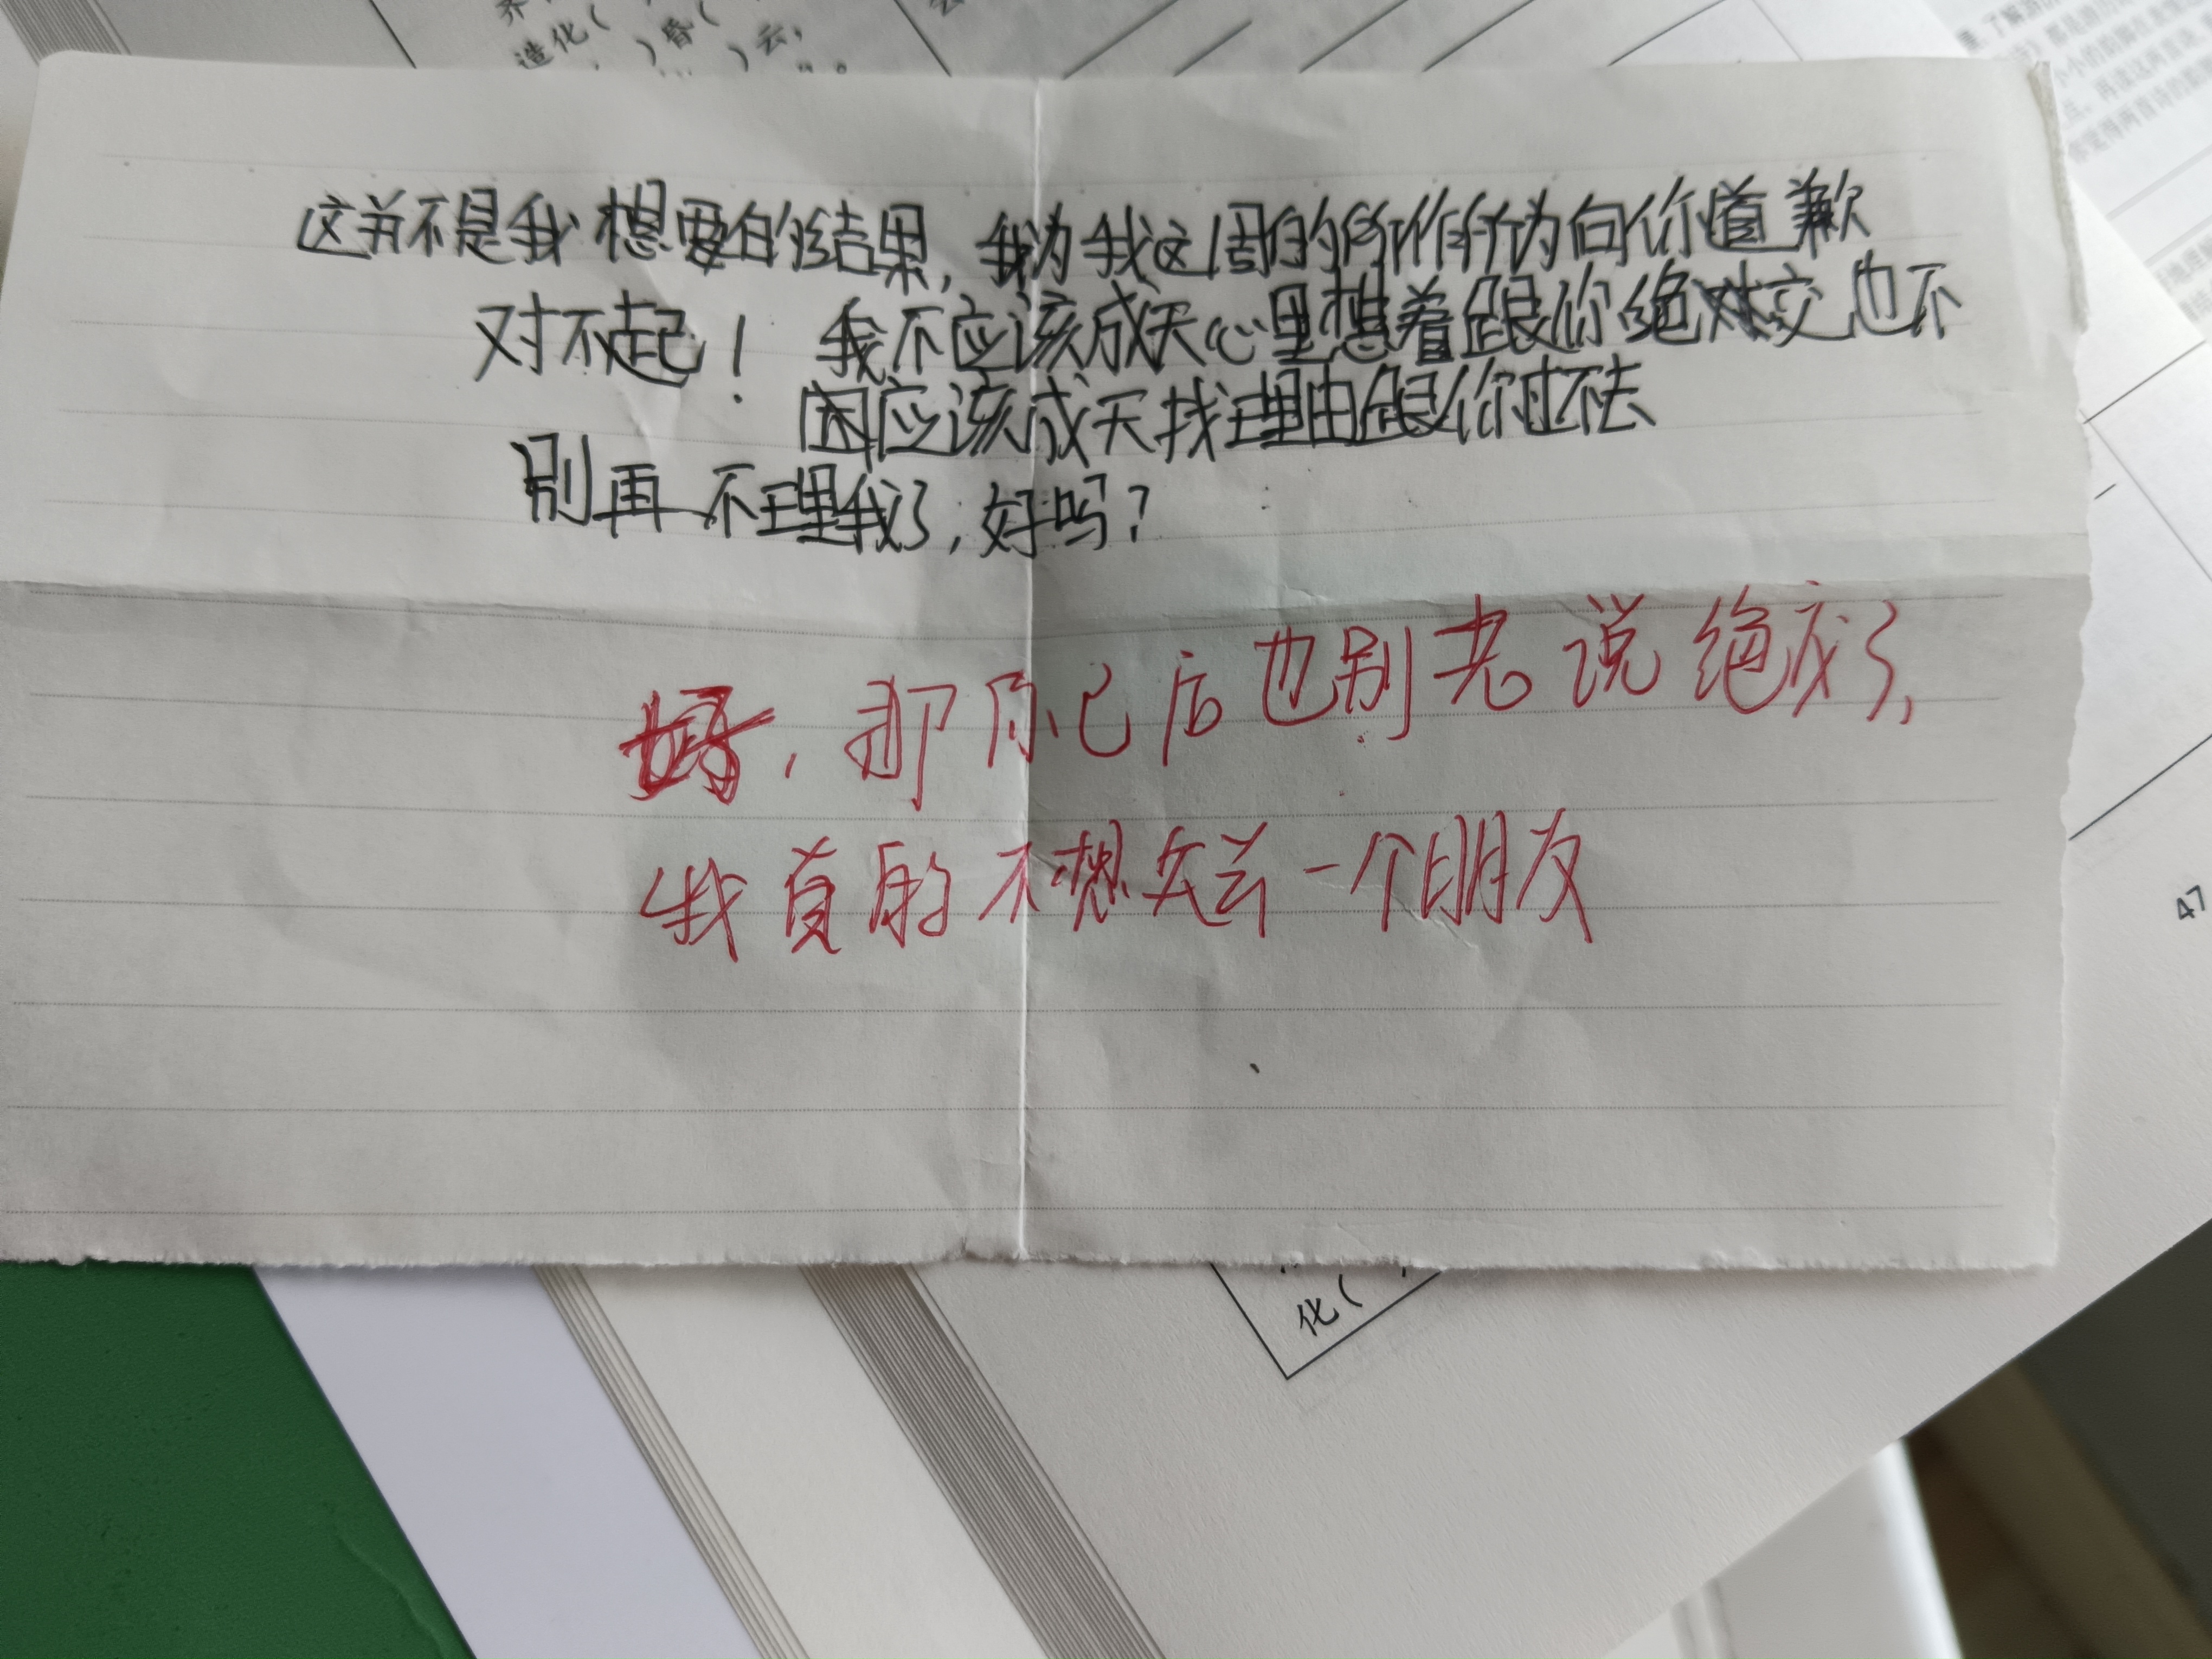 造化（
）昏（
）云，
这并不是我想要的结果，我为我这周的所作所为向你道歉
对不起！ 我不应该成天心里想着跟你绝交也不
因应该成天找理由跟你过不去
别再不理我了，好吗？
好，那你已后也别老说绝交了，
我真的不想失去一个朋友
47
化（